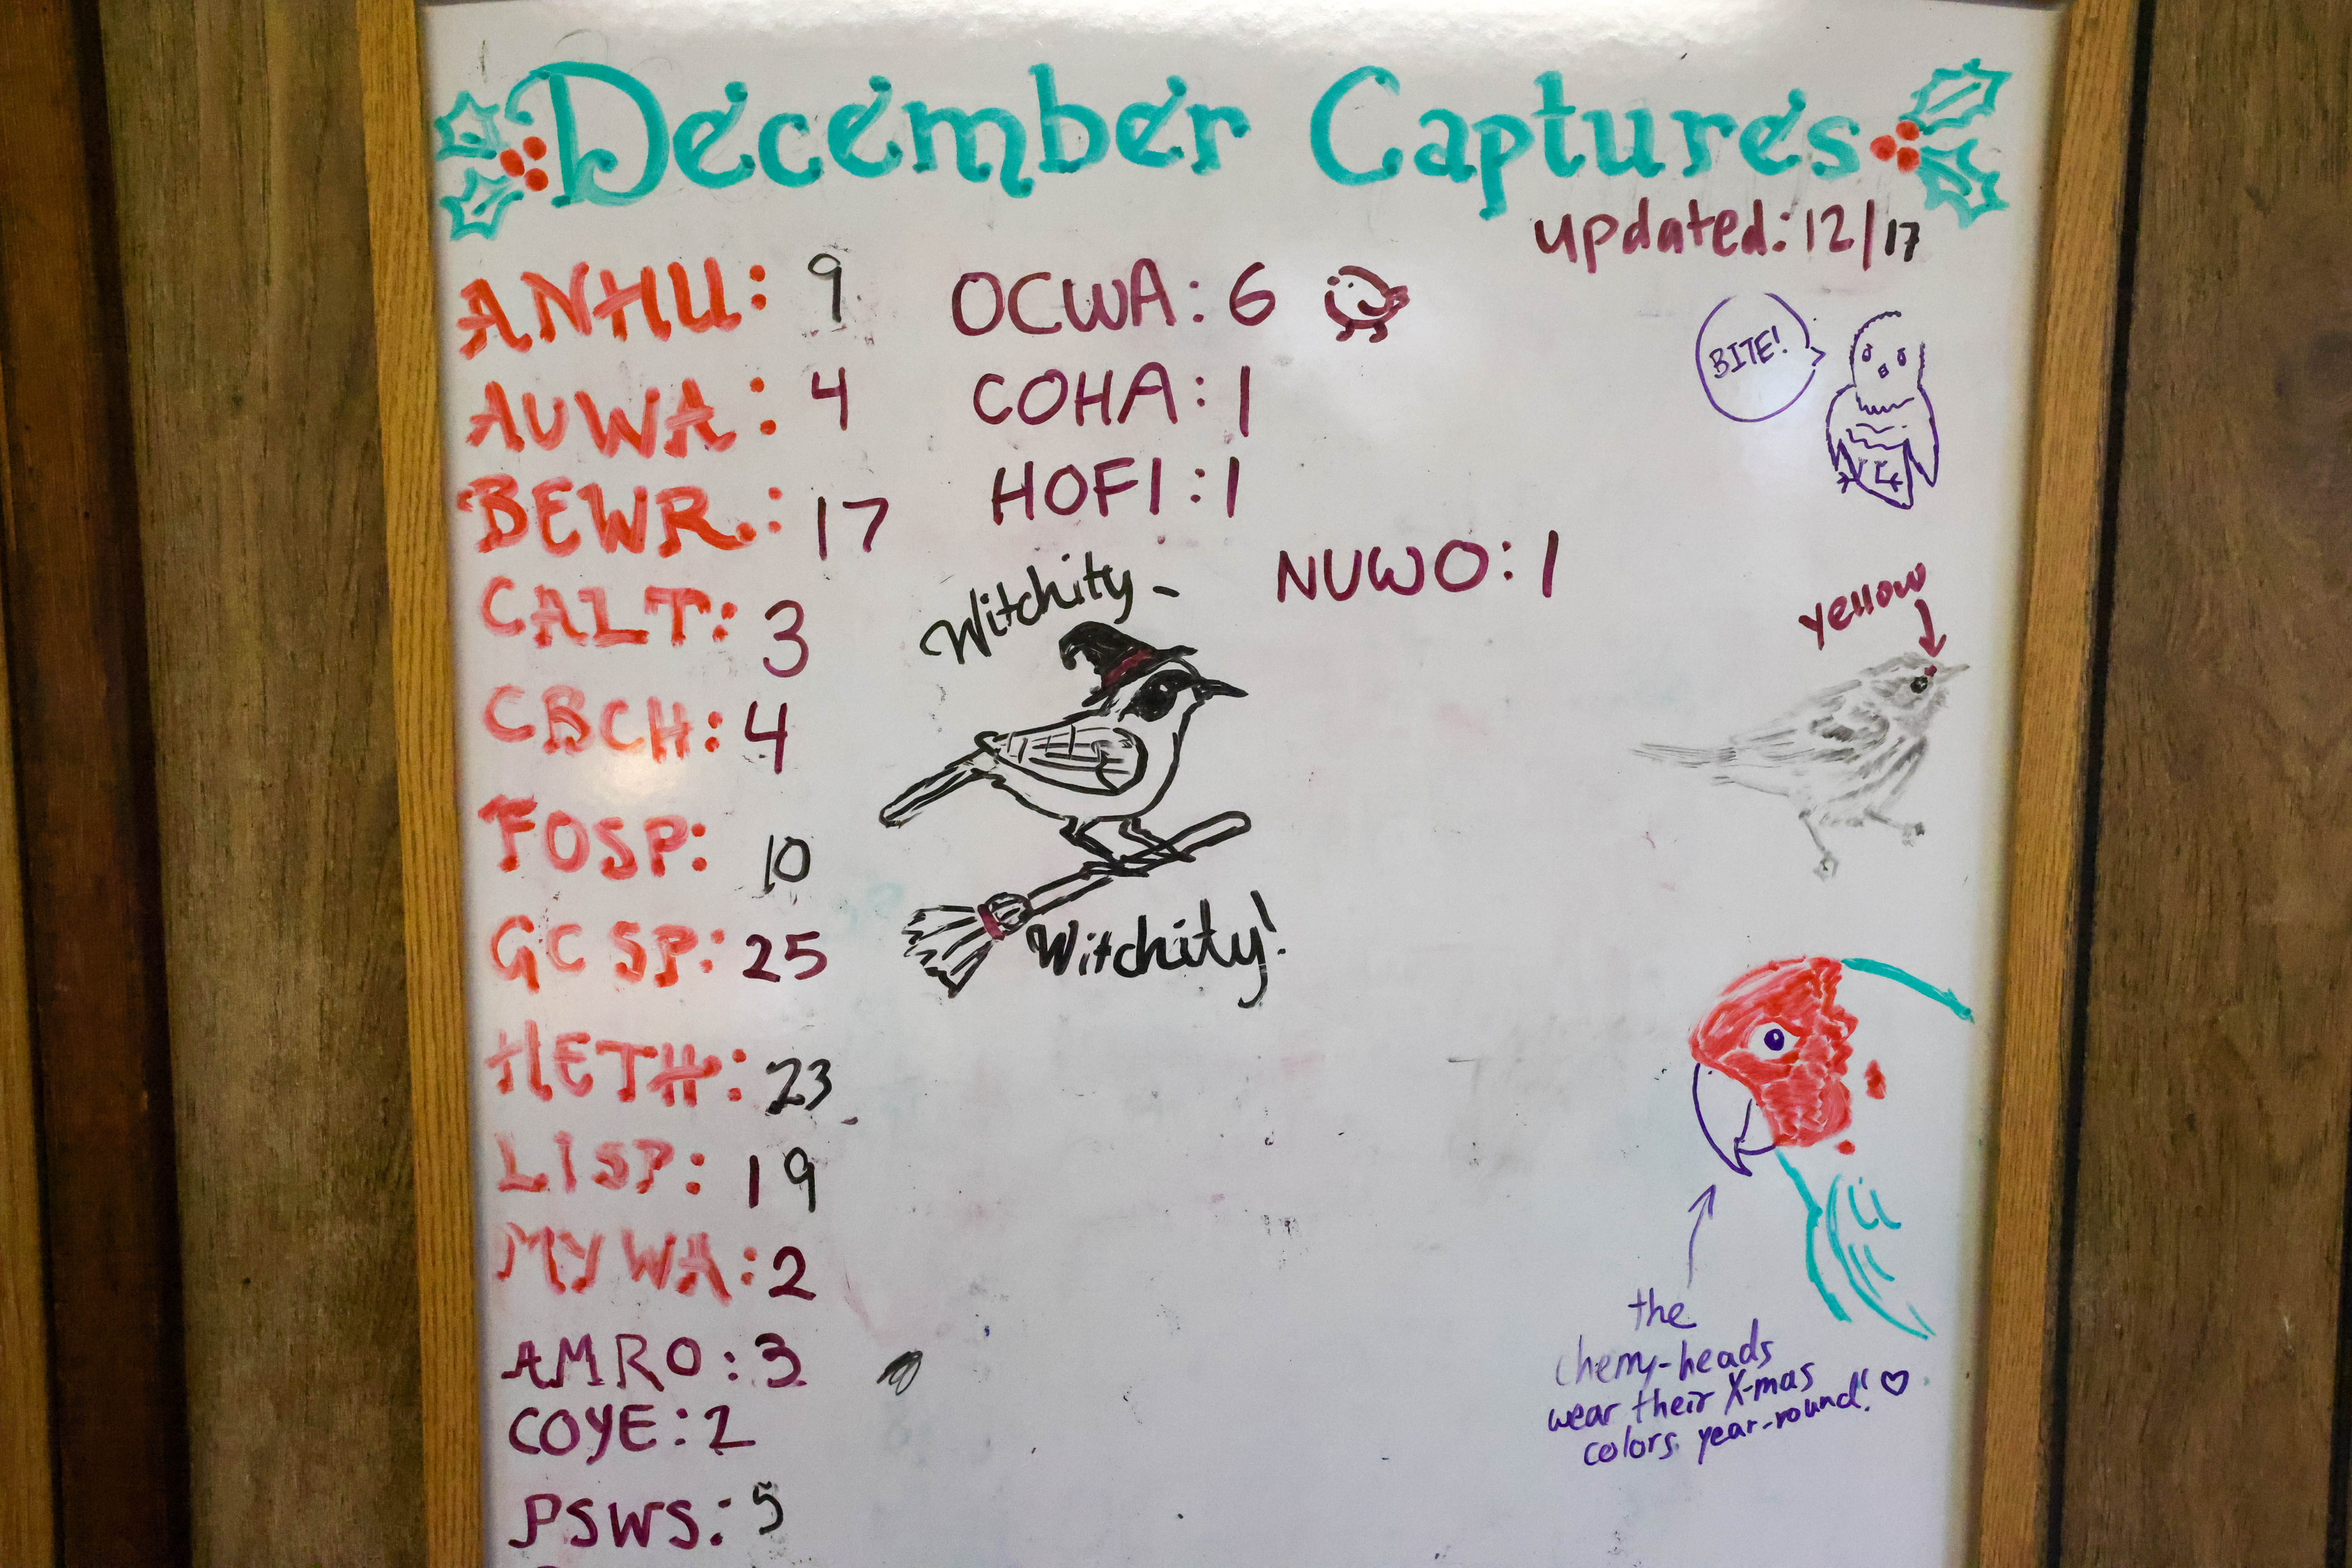 December Captures
updated: 12/17
ANHU: 9
AUWA: 4
BEWR.: 17
CALT: 3
CBCH: 4
FOSP: 10
GCSP: 25
HETH: 23
LISP: 19
MYWA: 2
AMRO: 3
COYE: 2
PSWS: 5
OCWA: 6
COHA: 1
HOFI: 1
NUWO: 1
Witchity-
Witchity!
BITE!
yellow
the
cherry-heads
wear their X-mas
colors year-round! ♡